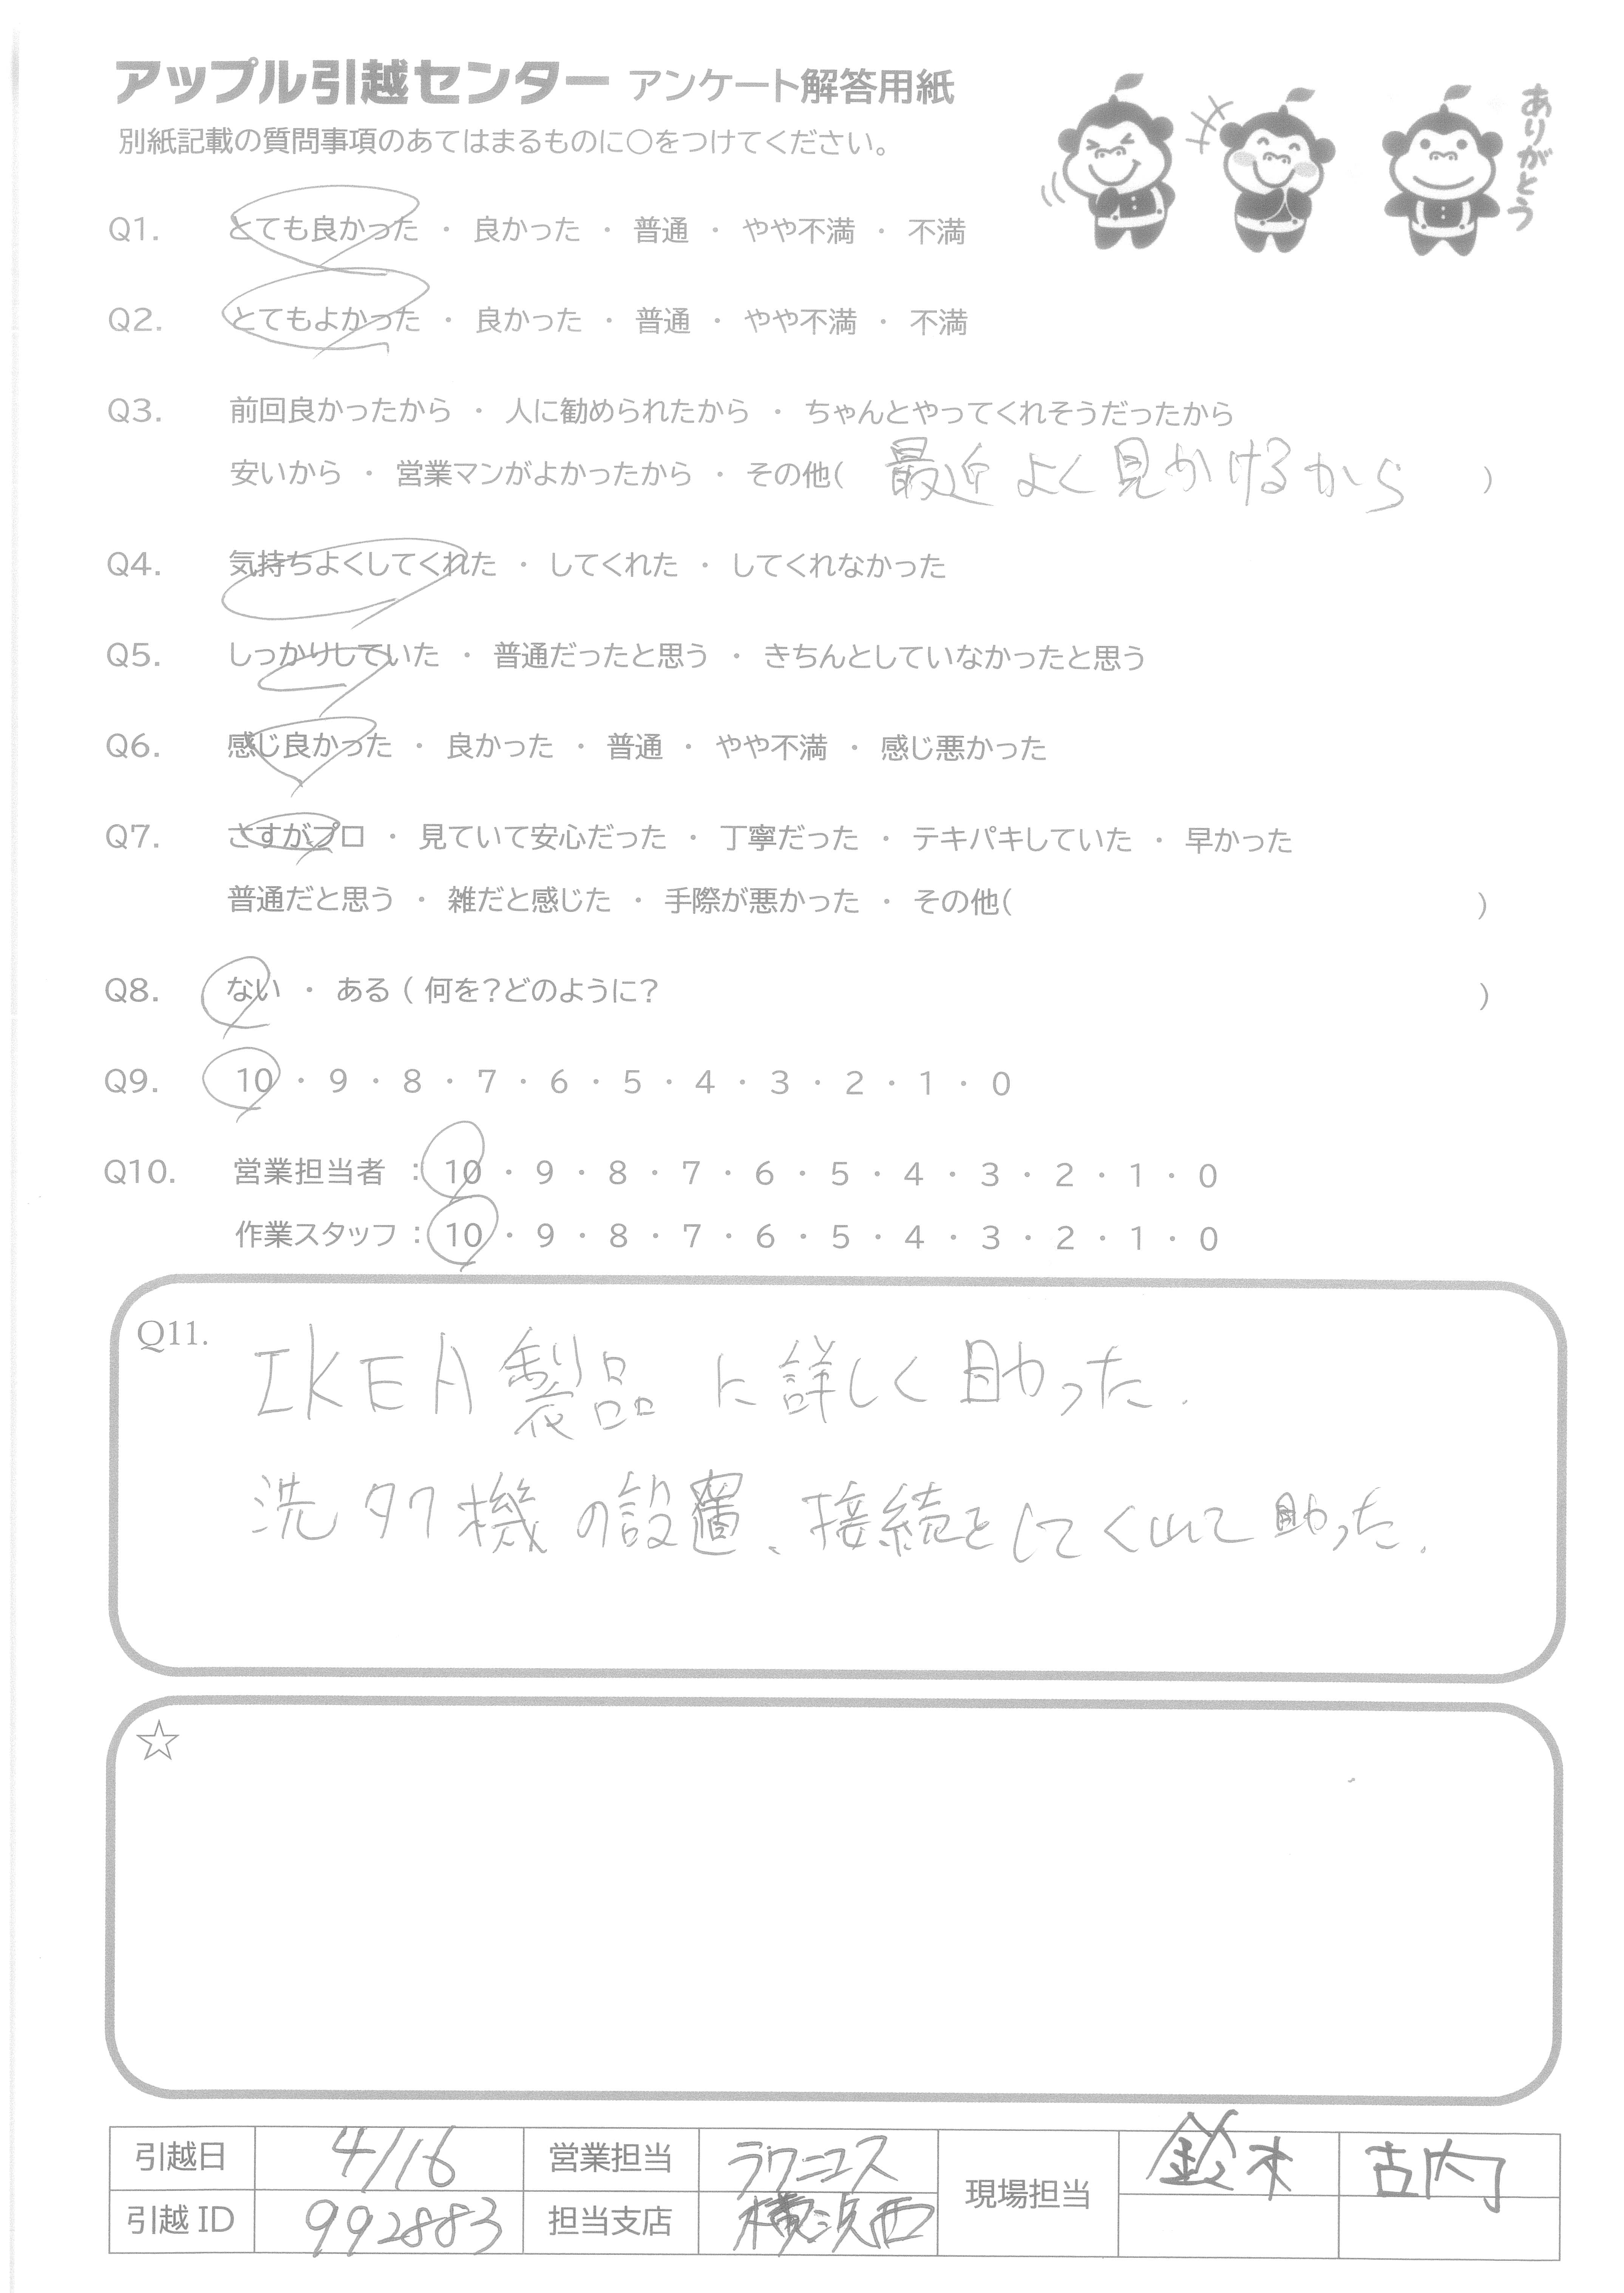 アップル引越センター アンケート解答用紙
別紙記載の質問事項のあてはまるものに○をつけてください。
ありがとう
Q1. とても良かった ・ 良かった ・ 普通 ・ やや不満 ・ 不満
Q2. とてもよかった ・ 良かった ・ 普通 ・ やや不満 ・ 不満
Q3. 前回良かったから ・ 人に勧められたから ・ ちゃんとやってくれそうだったから
安いから ・ 営業マンがよかったから ・ その他( 最近よく見かけるから )
Q4. 気持ちよくしてくれた ・ してくれた ・ してくれなかった
Q5. しっかりしていた ・ 普通だったと思う ・ きちんとしていなかったと思う
Q6. 感じ良かった ・ 良かった ・ 普通 ・ やや不満 ・ 感じ悪かった
Q7. さすがプロ ・ 見ていて安心だった ・ 丁寧だった ・ テキパキしていた ・ 早かった
普通だと思う ・ 雑だと感じた ・ 手際が悪かった ・ その他( )
Q8. ない ・ ある ( 何を?どのように? )
Q9. 10 ・ 9 ・ 8 ・ 7 ・ 6 ・ 5 ・ 4 ・ 3 ・ 2 ・ 1 ・ 0
Q10. 営業担当者 : 10 ・ 9 ・ 8 ・ 7 ・ 6 ・ 5 ・ 4 ・ 3 ・ 2 ・ 1 ・ 0
作業スタッフ : 10 ・ 9 ・ 8 ・ 7 ・ 6 ・ 5 ・ 4 ・ 3 ・ 2 ・ 1 ・ 0
Q11. IKEA製品に詳しく助かった.
洗タク機の設置、接続をしてくれて助かった.
☆
引越日 4/16 営業担当 現場担当 鈴木 古内
引越ID 992883 担当支店 横浜西